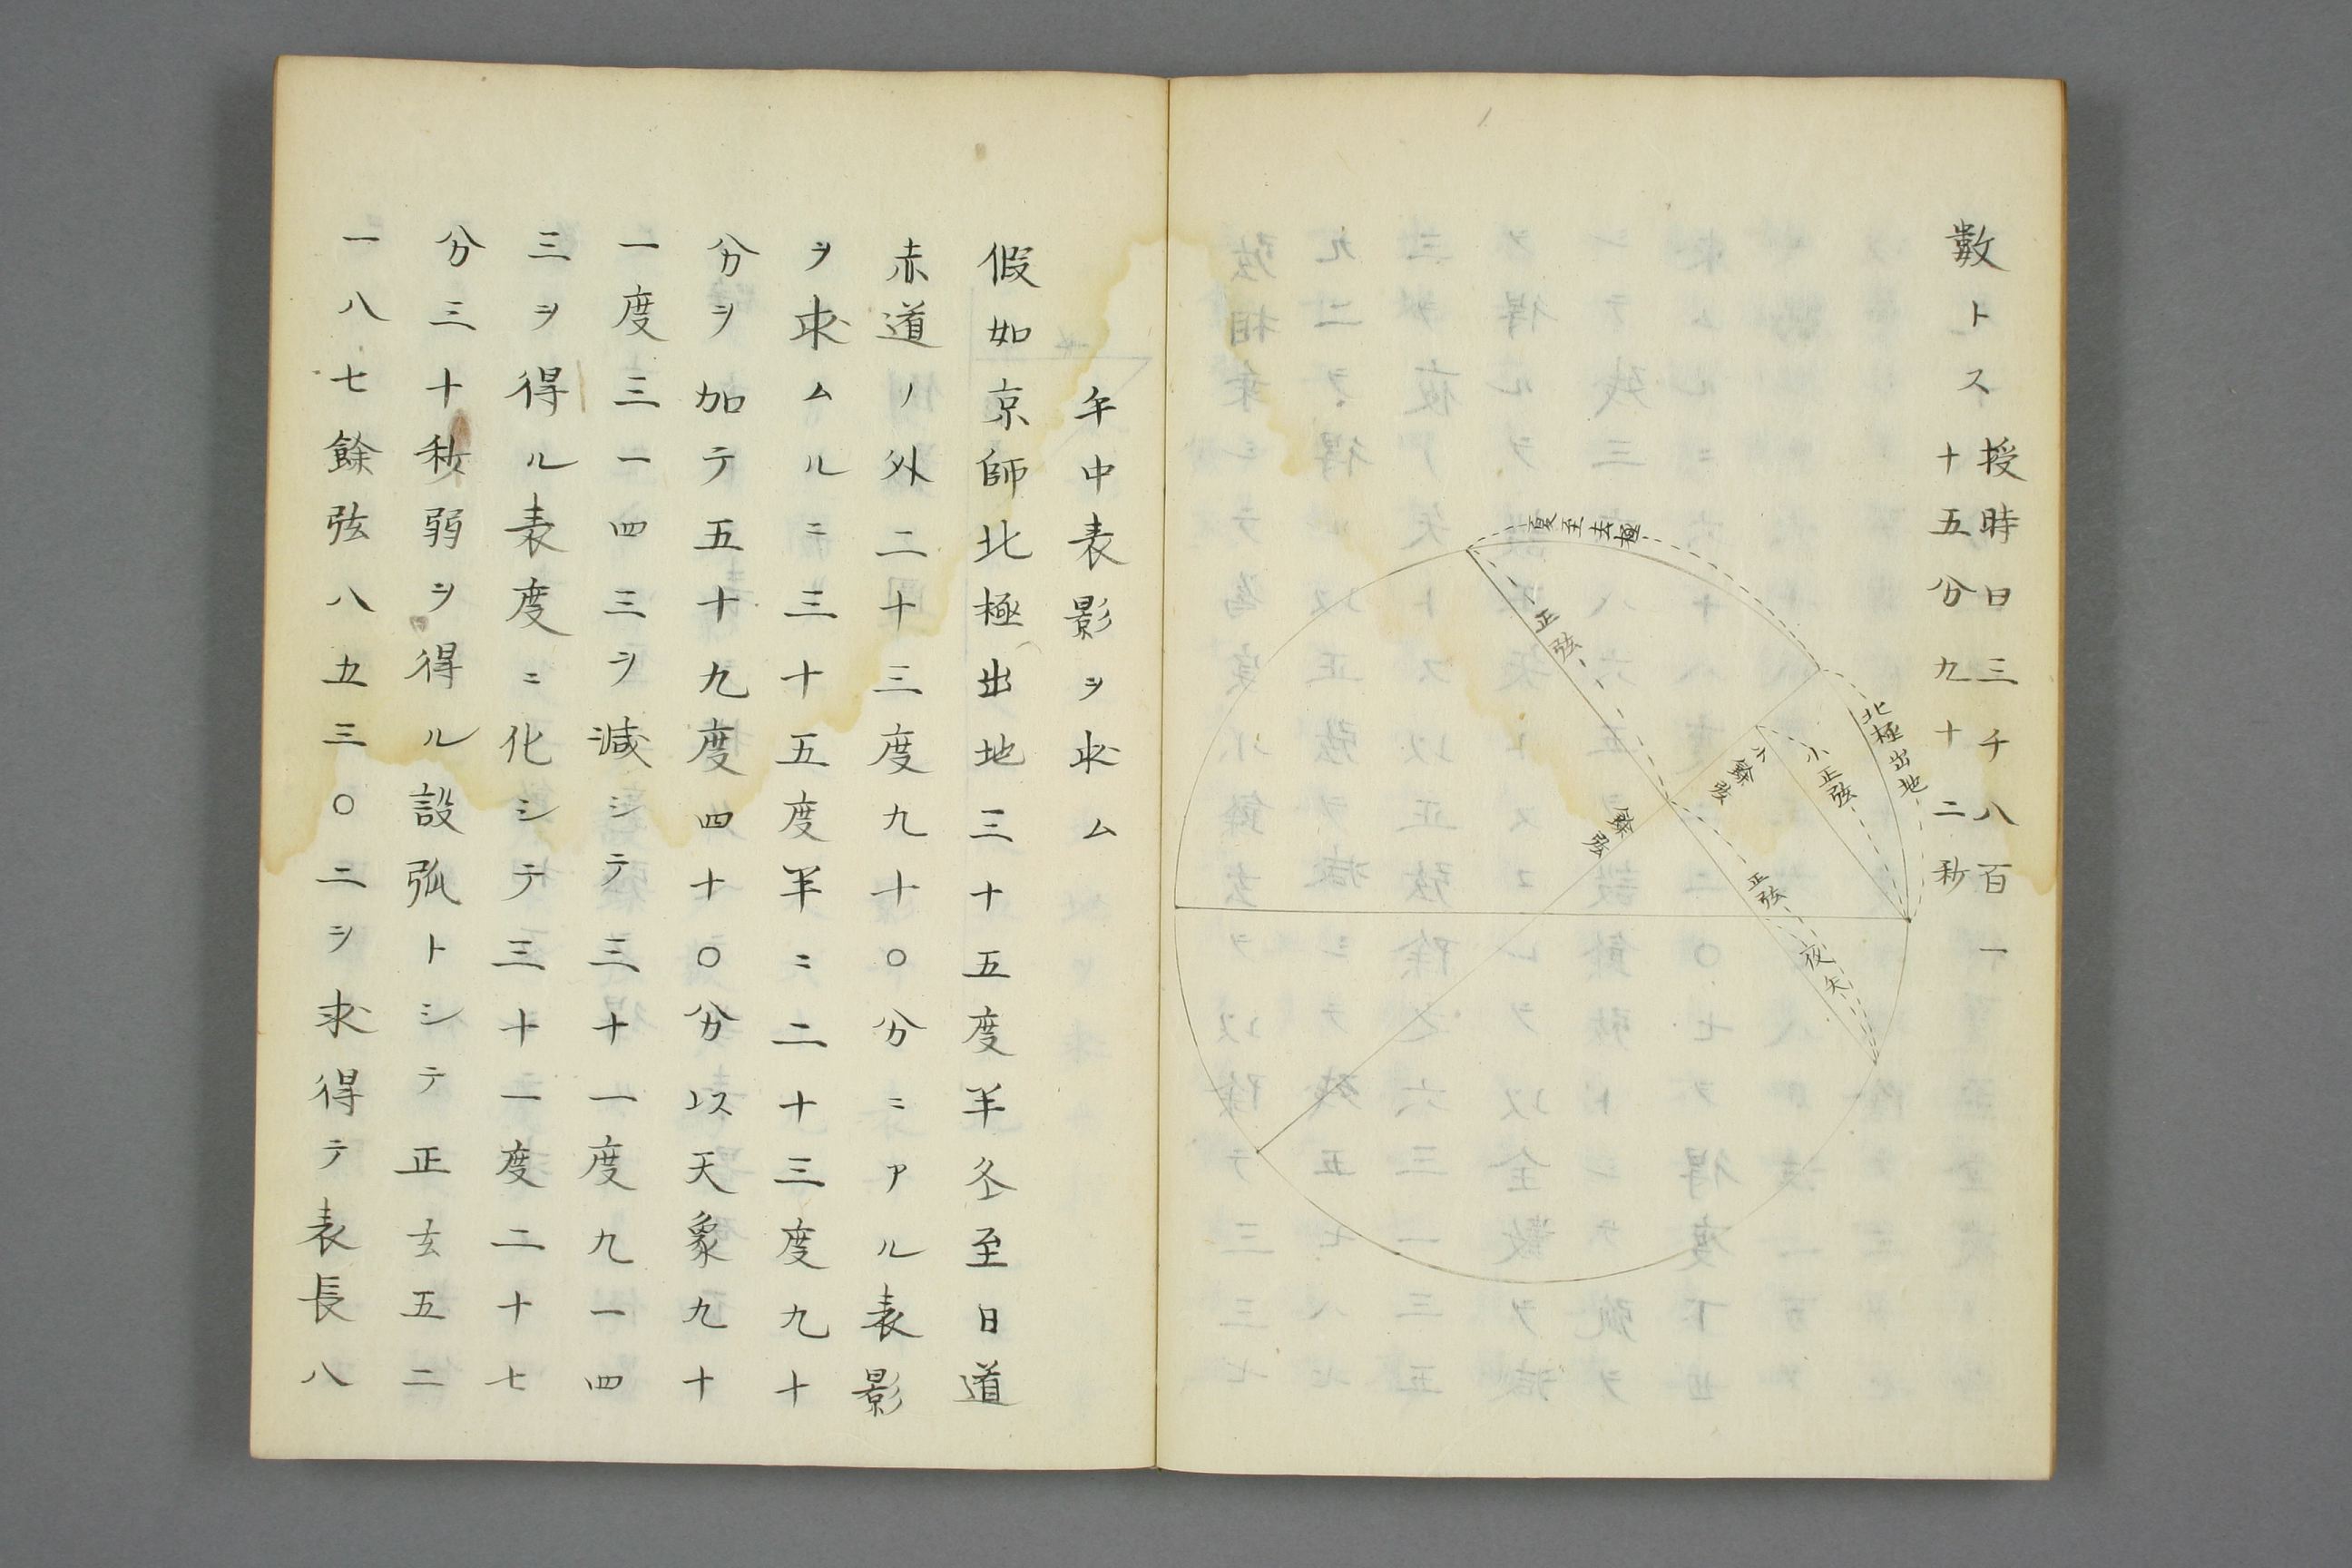 數トス
授時日三千八百一
十五分九十二秒
夏至去極
正弦
北極出地
小正弦
小餘弦
餘弦
正弦
夜矢
午中表影ヲ求ム
假如京師北極出地三十五度半冬至日道
赤道ノ外二十三度九十〇分ニアル表影
ヲ求ムルニ三十五度半ニ二十三度九十
分ヲ加テ五十九度四十〇分以天象九十
一度三一四三ヲ減シテ三十一度九一四
三ヲ得ル表度ニ化シテ三十一度二十七
分三十秒弱ヲ得ル設弧トシテ正玄五二
一八七餘弦八五三〇二ヲ求得テ表長八